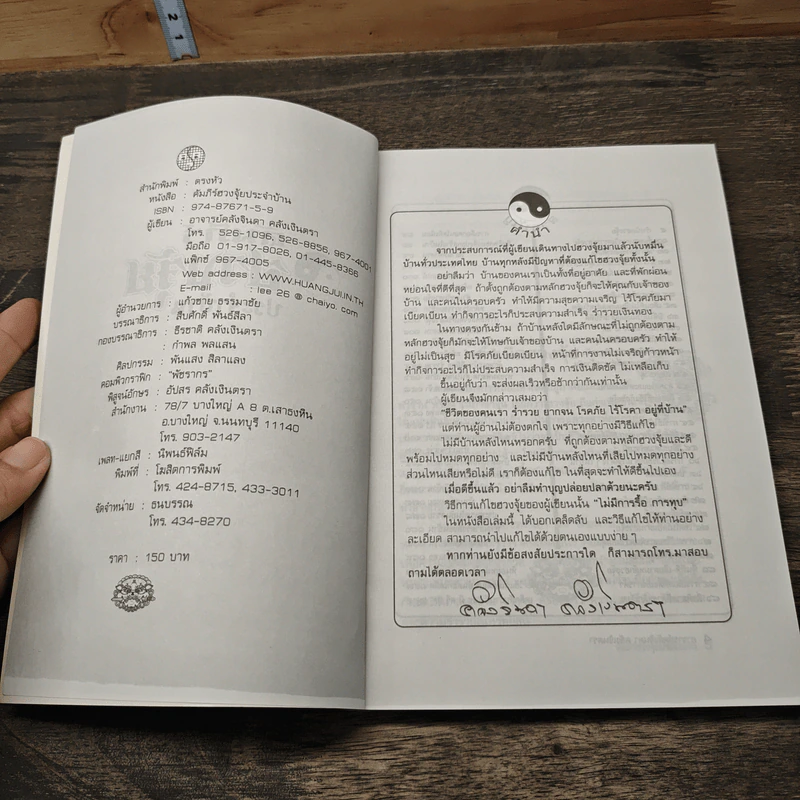 สำนักพิมพ์ : ตรงหัว
หนังสือ : คัมภีร์ฮวงจุ้ยประจำบ้าน
ISBN : 974-87671-5-9
ผู้เขียน : อาจารย์คลังจินดา คลังเงินตรา
โทร. 526-1096, 526-8856, 967-4001
มือถือ 01-917-8026, 01-445-8366
แฟ็กซ์ 967-4005
Web address : WWW.HUANGJUI.IN.TH
E-mail : lee 26 @ chaiyo. com
ผู้อำนวยการ : แก้วชาย ธรรมาชัย
บรรณาธิการ : สืบศักดิ์ พันธ์สีลา
กองบรรณาธิการ : ธีรชาติ คลังเงินตรา
: กำพล พลแสน
ศิลปกรรม : พันแสง สีลาแลง
คอมพิวกราฟิก : "พัชรากร"
พิสูจน์อักษร : อัปสร คลังเงินตรา
สำนักงาน : 78/7 บางใหญ่ A 8 ต.เสาธงหิน
อ.บางใหญ่ จ.นนทบุรี 11140
โทร. 903-2147
เพลท-แยกสี : นิพนธ์ฟิล์ม
พิมพ์ที่ : โฆสิตการพิมพ์
โทร. 424-8715, 433-3011
จัดจำหน่าย : ธนบรรณ
โทร. 434-8270
ราคา : 150 บาท
คำนำ
จากประสบการณ์ที่ผู้เขียนเดินทางไปฮวงจุ้ยมาแล้วนับหมื่น
บ้านทั่วประเทศไทย บ้านทุกหลังมีปัญหาที่ต้องแก้ไขฮวงจุ้ยทั้งนั้น
อย่าลืมว่า บ้านของคนเราเป็นทั้งที่อยู่อาศัย และที่พักผ่อน
หย่อนใจที่ดีที่สุด ถ้าตั้งถูกต้องตามหลักฮวงจุ้ยก็จะให้คุณกับเจ้าของ
บ้าน และคนในครอบครัว ทำให้มีความสุขความเจริญ ไร้โรคภัยมา
เบียดเบียน ทำกิจการอะไรก็ประสบความสำเร็จ ร่ำรวยเงินทอง
ในทางตรงกันข้าม ถ้าบ้านหลังใดมีลักษณะที่ไม่ถูกต้องตาม
หลักฮวงจุ้ยก็มักจะให้โทษกับเจ้าของบ้าน และคนในครอบครัว ทำให้
อยู่ไม่เป็นสุข มีโรคภัยเบียดเบียน หน้าที่การงานไม่เจริญก้าวหน้า
ทำกิจการอะไรก็ไม่ประสบความสำเร็จ การเงินติดขัด ไม่เหลือเก็บ
ขึ้นอยู่กับว่า จะส่งผลเร็วหรือช้ากว่ากันเท่านั้น
ผู้เขียนจึงมักกล่าวเสมอว่า
"ชีวิตของคนเรา ร่ำรวย ยากจน โรคภัย ไร้โรคา อยู่ที่บ้าน"
แต่ท่านผู้อ่านไม่ต้องตกใจ เพราะทุกอย่างมีวิธีแก้ไข
ไม่มีบ้านหลังไหนหรอกครับ ที่ถูกต้องตามหลักฮวงจุ้ยและดี
พร้อมไปหมดทุกอย่าง และไม่มีบ้านหลังไหนที่เสียไปหมดทุกอย่าง
ส่วนไหนเสียหรือไม่ดี เราก็ต้องแก้ไข ในที่สุดจะทำให้ดีขึ้นไปเอง
เมื่อดีขึ้นแล้ว อย่าลืมทำบุญปล่อยปลาด้วยนะครับ
วิธีการแก้ไขฮวงจุ้ยของผู้เขียนนั้น "ไม่มีการรื้อ การทุบ"
ในหนังสือเล่มนี้ ได้บอกเคล็ดลับ และวิธีแก้ไขให้ท่านอย่าง
ละเอียด สามารถนำไปแก้ไขได้ด้วยตนเองแบบง่าย ๆ
หากท่านยังมีข้อสงสัยประการใด ก็สามารถโทร.มาสอบ
ถามได้ตลอดเวลา
คลังจินดา คลังเงินตรา
2
1